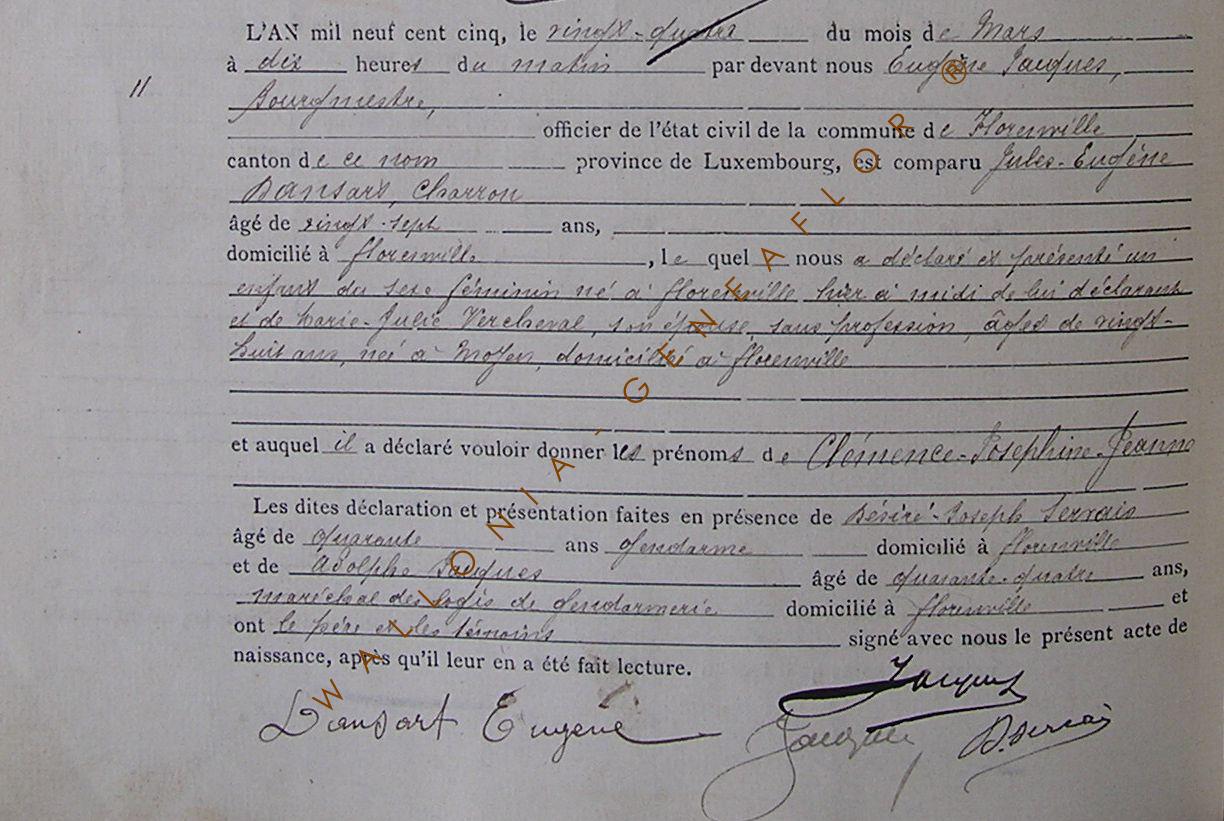 L'AN mil neuf cent cinq, le vingt-quatre du mois de Mars
à dix heures du matin par devant nous Eugène Jacques,
11
Bourgmestre,
officier de l'état civil de la commune de Florenville
canton de ce nom province de Luxembourg, est comparu Jules-Eugène
Dansart, Charron
âgé de vingt-sept ans,
domicilié à florenville, le quel nous a déclaré et présenté un
enfant du sexe féminin né à florenville hier à midi de lui déclarant
et de Marie-Julie Vercheval, son épouse, sans profession, âgée de vingt-
huit ans, née à Moyen, domiciliée à florenville
et auquel il a déclaré vouloir donner les prénoms de Clémence-Josephine-Jeanne
Les dites déclaration et présentation faites en présence de Désiré-Joseph Servais
âgé de quarante ans gendarme domicilié à florenville
et de Adolphe Jacques âgé de quarante-quatre ans,
maréchal des logis de gendarmerie domicilié à florenville et
ont le père et les témoins signé avec nous le présent acte de
naissance, après qu'il leur en a été fait lecture.
Jacques
Dansart Eugène Jacques D. Servais
WALLONIA - GENEAFLOR ®